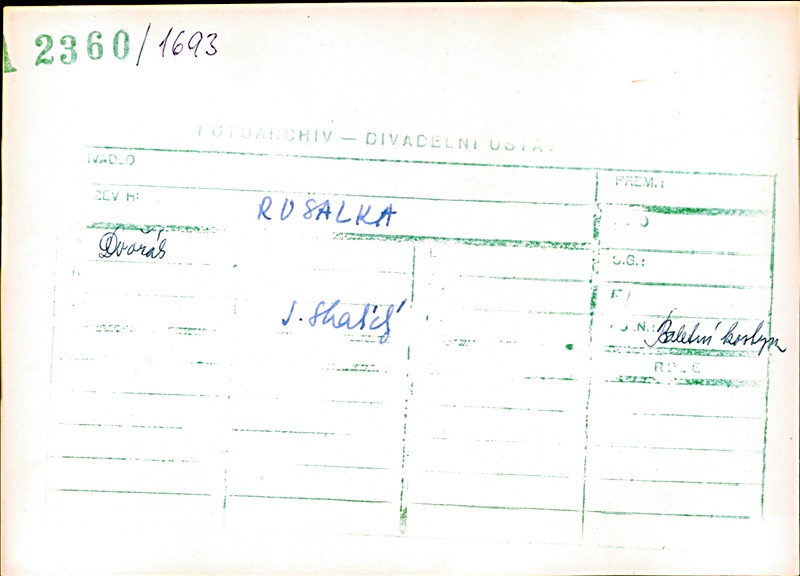 A 2360/1693
FOTOARCHIV — DIVADELNÍ ÚSTAV
IVADLO
PREM.:
ZEV H
RUSALKA
Dvořák
S.G.:
J. Skalický
Baletní kostým
ROLE